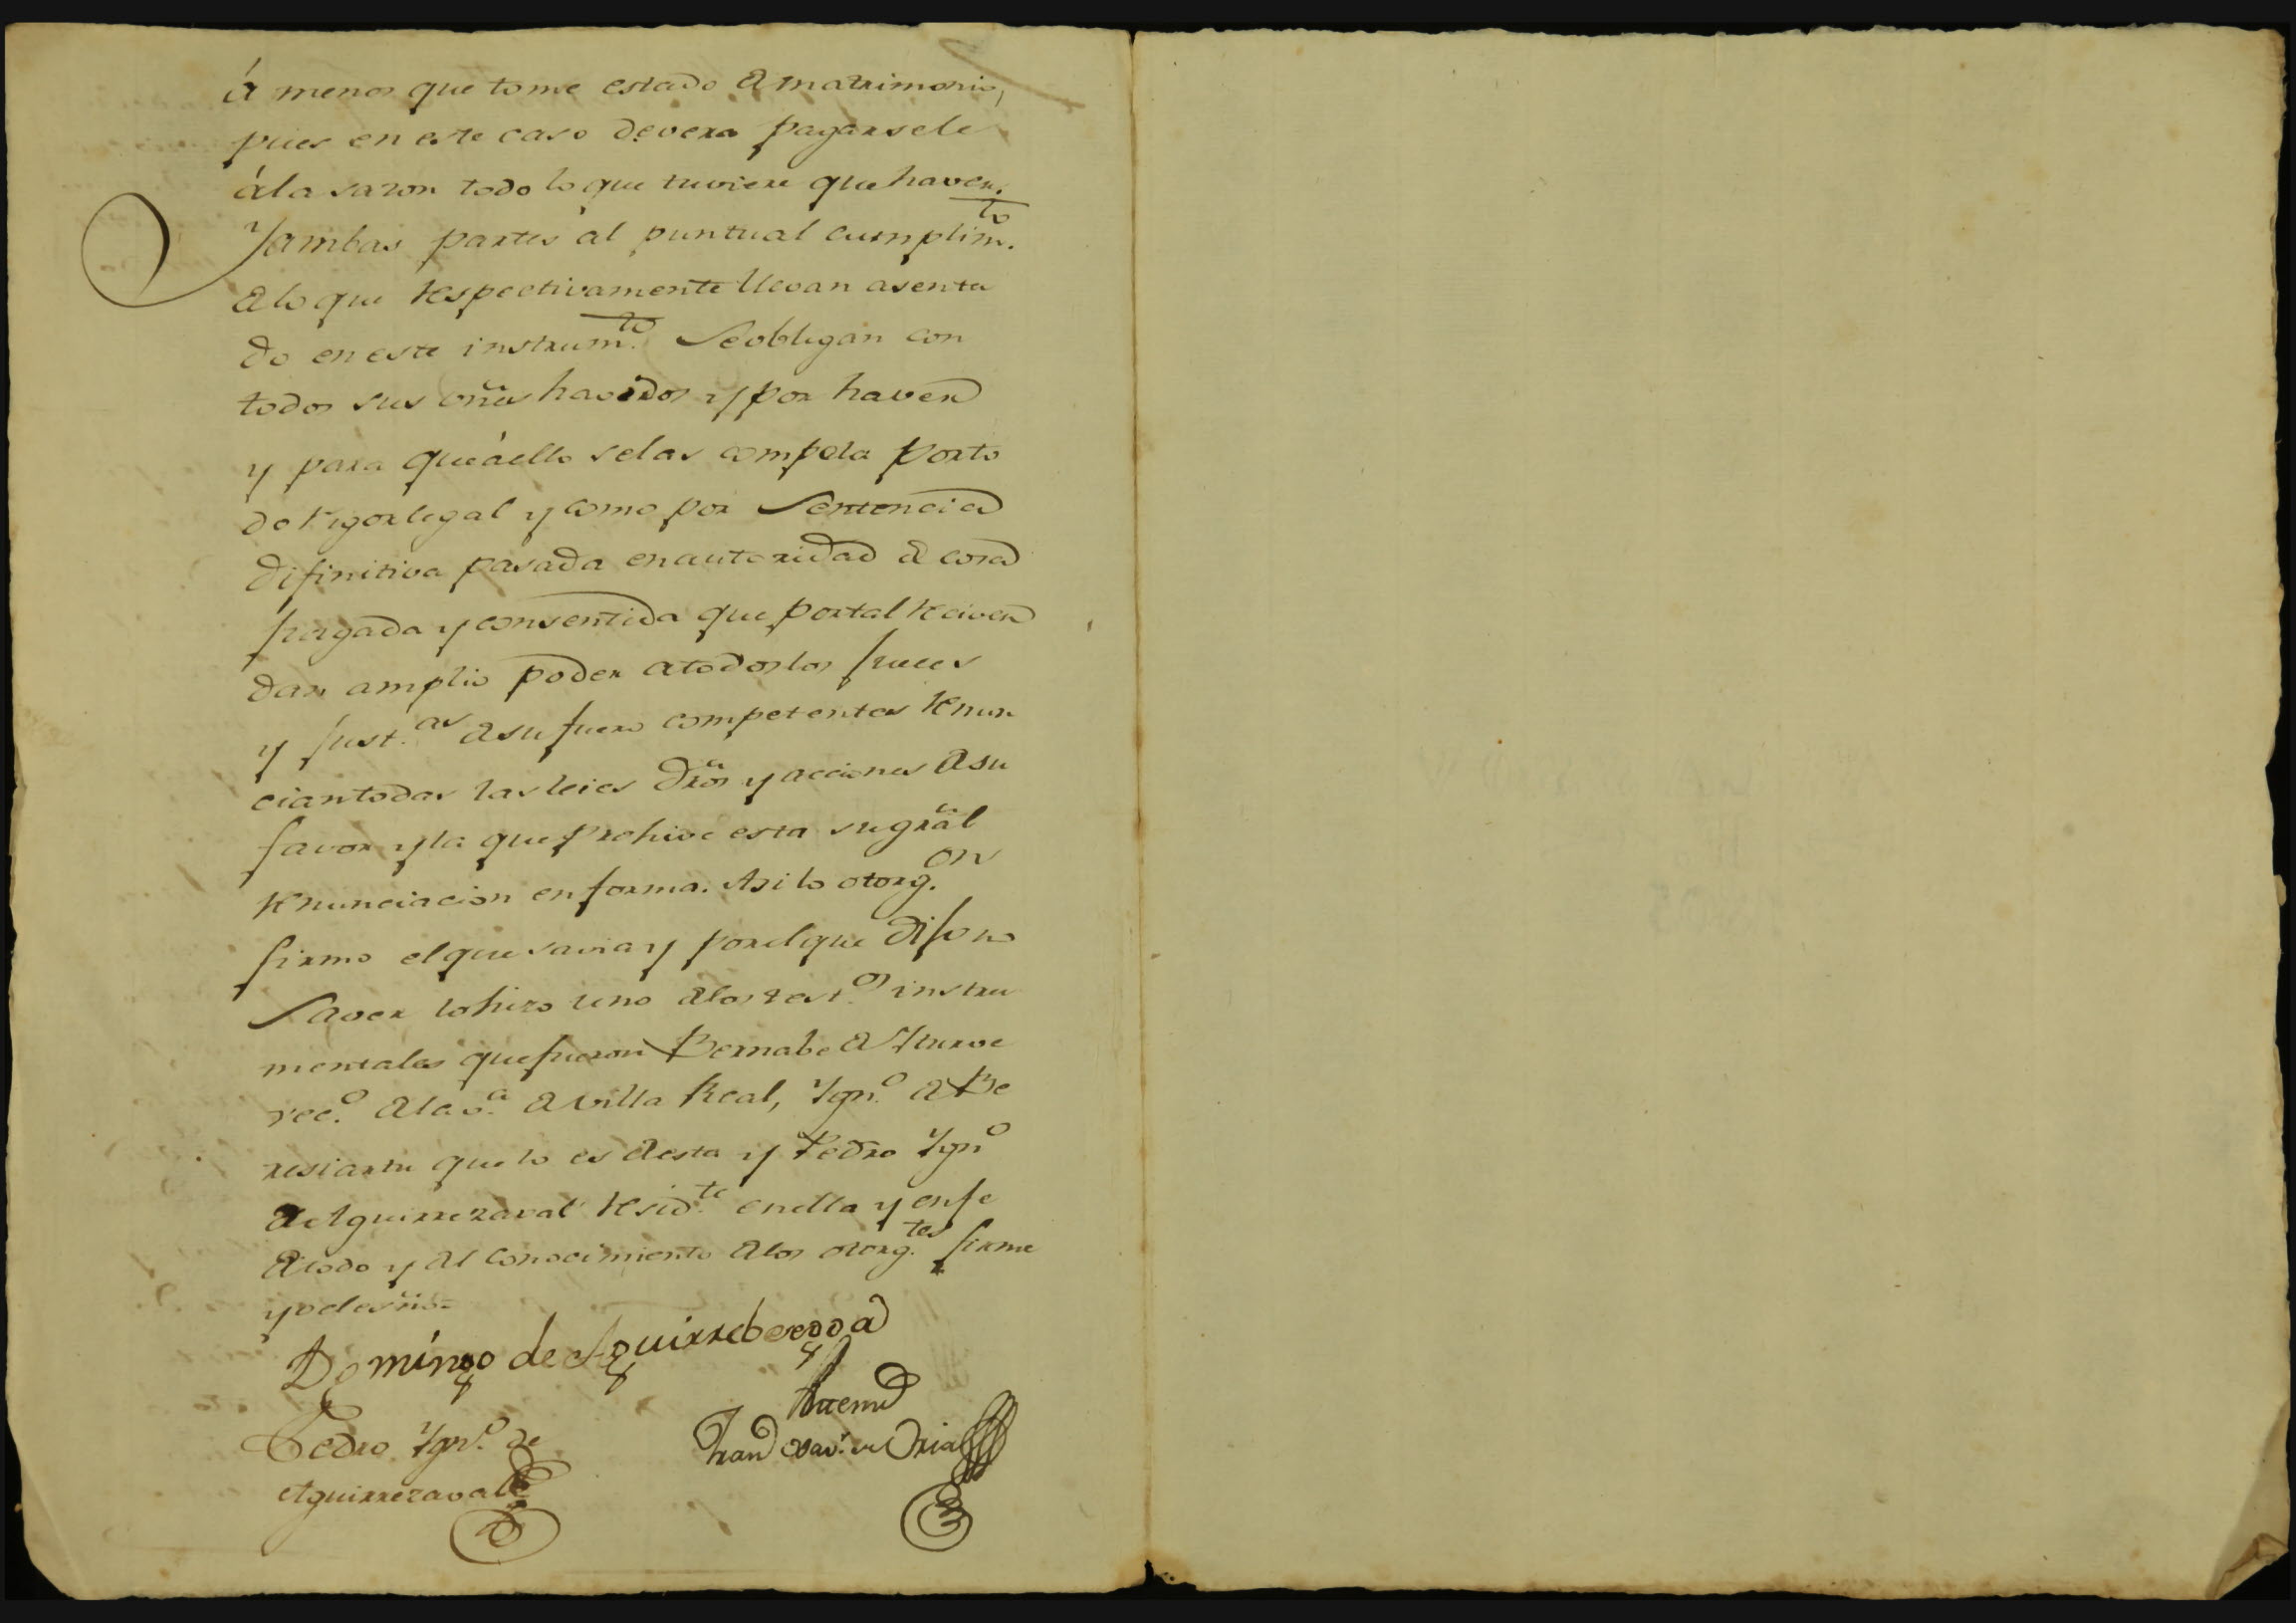 á menos que tome estado de matrimonio,
pues en este caso devera pagarsele
á la sazon todo lo que tuviere que haver.
Y ambas partes al puntual cumplim.to
de lo que respectivamente llevan asenta
do en este instrum.to Se obligan con
todos sus vñes havidos y por haver
y para que áello selas compela por to
do rigor legal y como por Sentencia
difinitiva pasada en autoridad de cosa
juzgada y consentida que por tal reciven
dan amplio poder a todos los jueces
y just.as de su fuero competentes renun
cian todas las leies dr̃os y acciones de su
favor y la que prohive esta su gr̃al
renunciacion en forma. Asi lo otorg.on
firmo el que savia y por el que dijo no
Saver lo hizo uno de los test.os instru
mentales que fueron Bernabe de Yturve
vec.o de la v.a de Villa Real, Ygn.o de Be
resiartu que lo es de esta y Pedro Ygn.o
de Aguirrezaval resid.te en ella y en fe
de todo y del conocimiento de los otorg.tes firme
yo el es̃no=
Domingo de Aguirrebengoa
Pedro Ygn.o de
Aguirrezaval
Antemi
Fran Xav.r de Oria